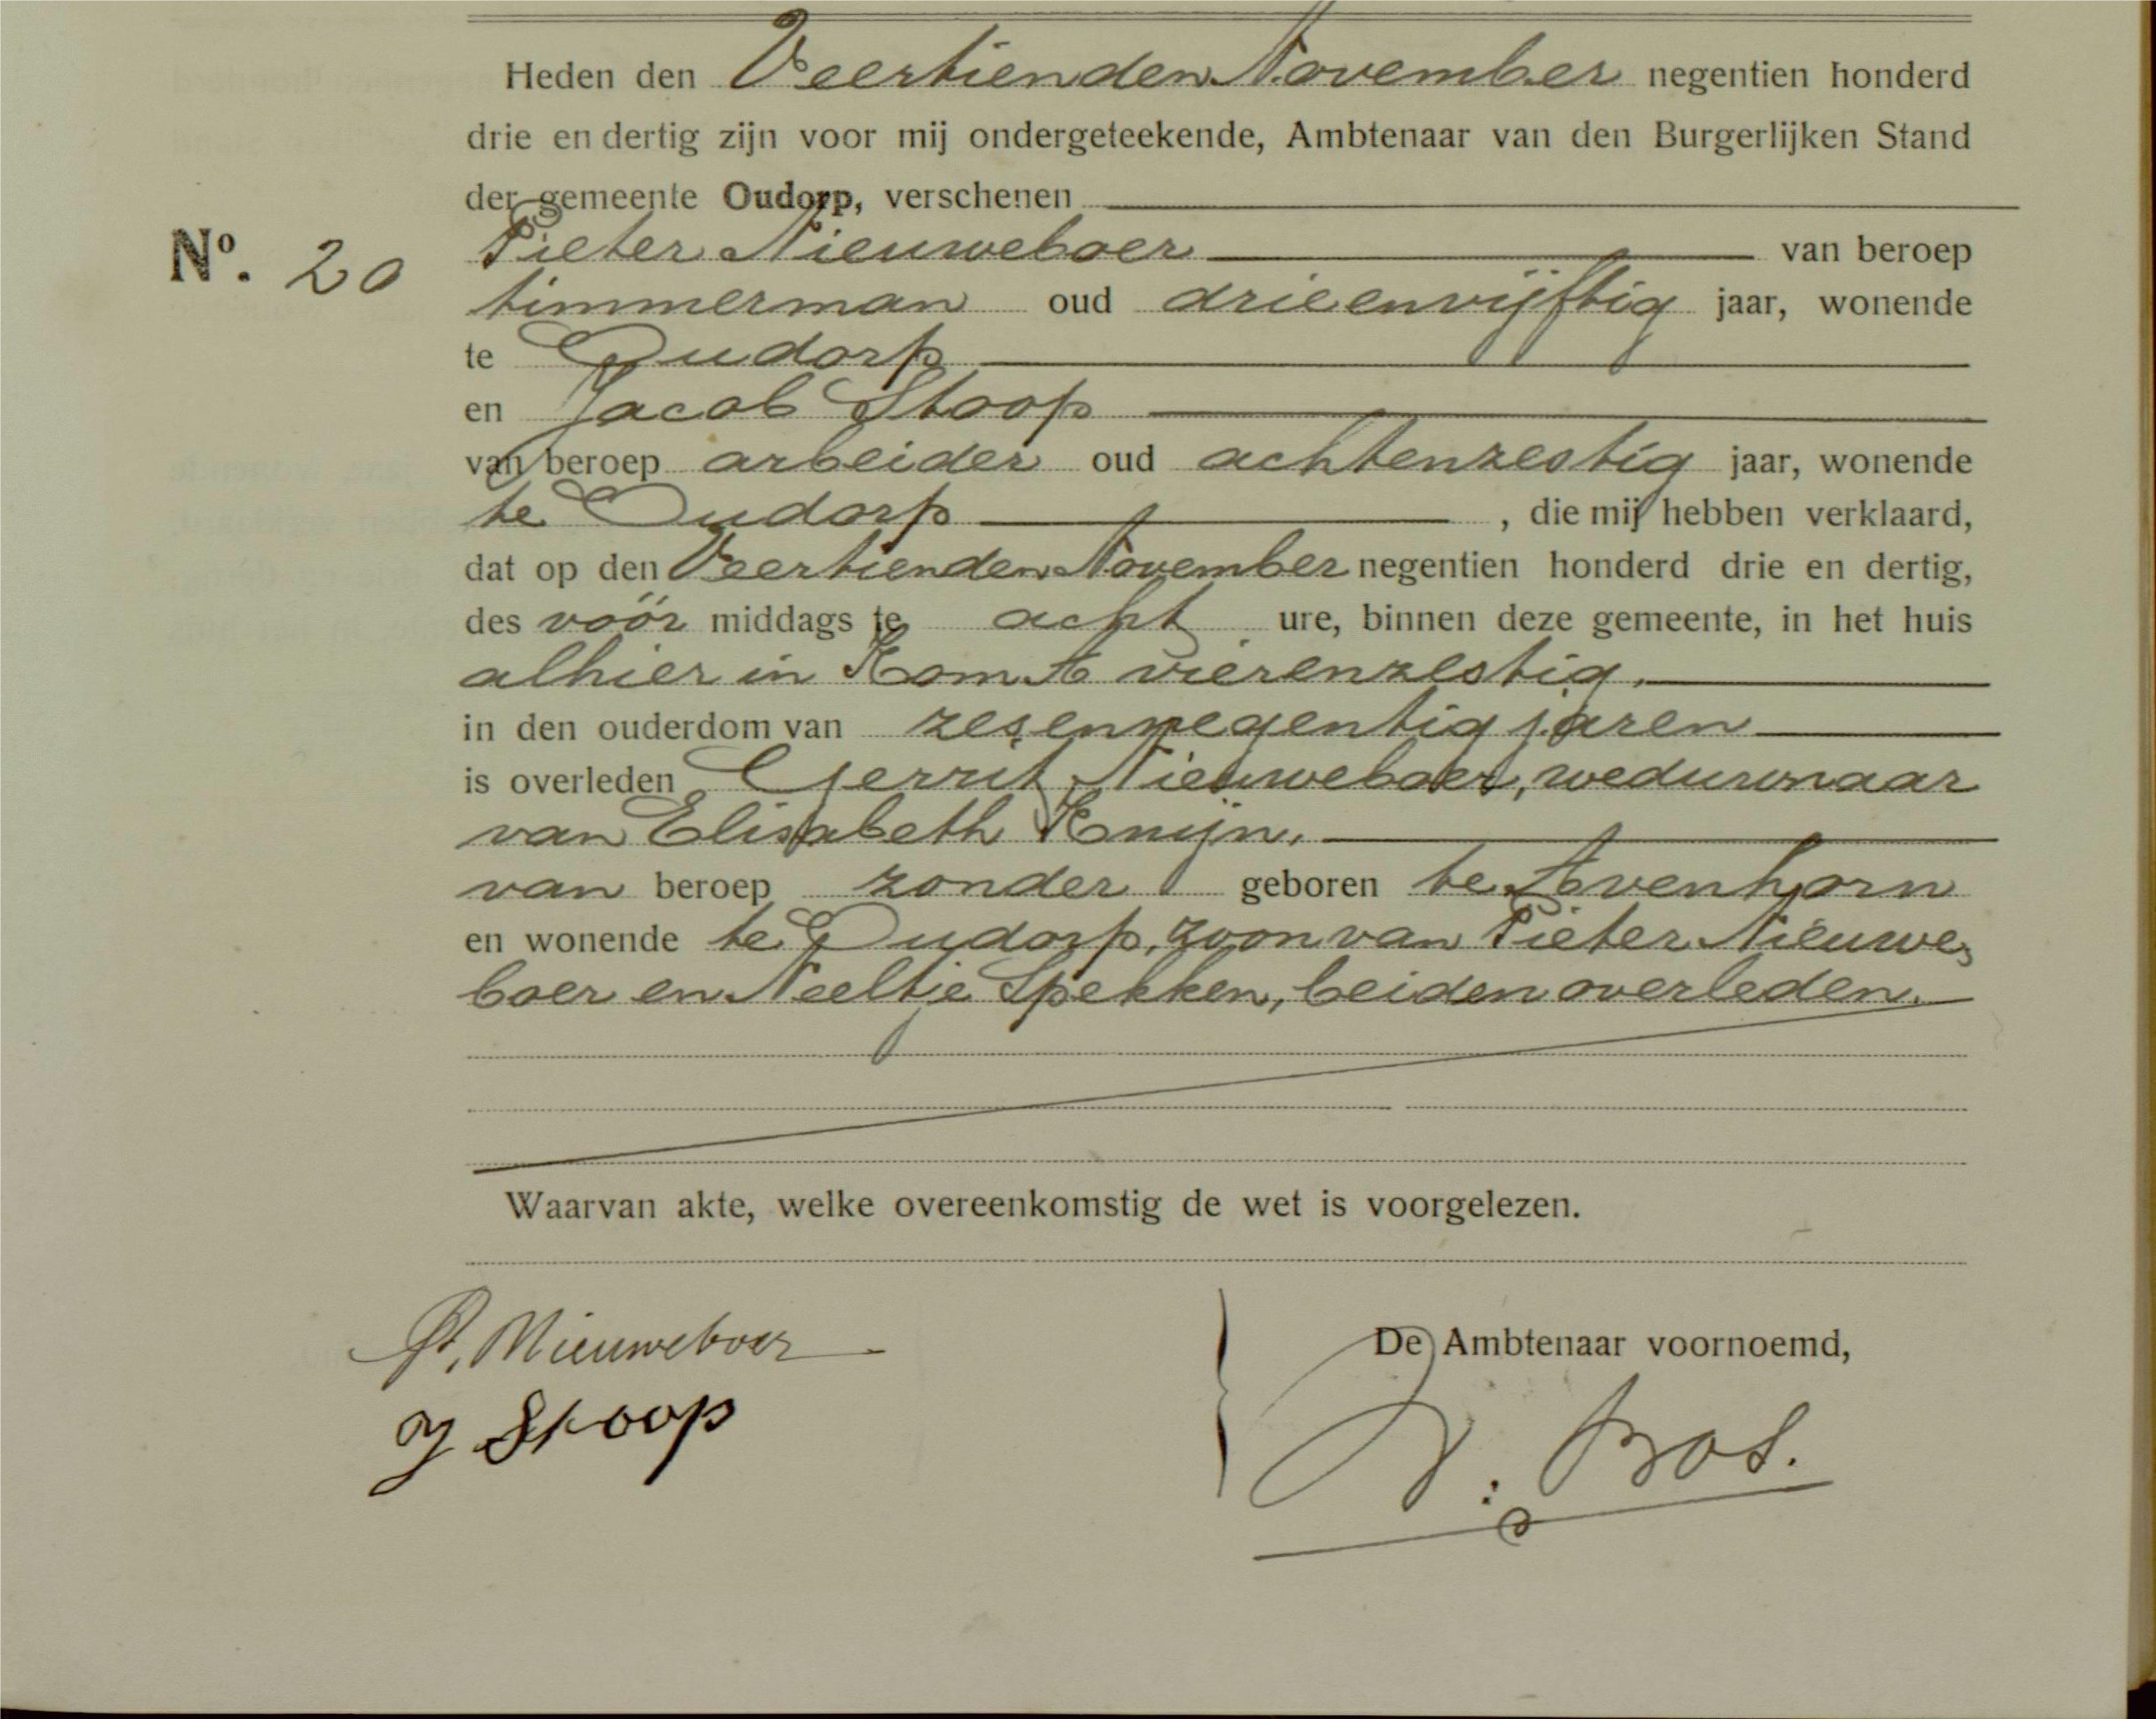 Heden den Veertienden November negentien honderd
drie en dertig zijn voor mij ondergeteekende, Ambtenaar van den Burgerlijken Stand
der gemeente Oudorp, verschenen
No. 20
Pieter Nieuweboer van beroep
timmerman oud drieenvijftig jaar, wonende
te Oudorp
en Jacob Stoop
van beroep arbeider oud achtenzestig jaar, wonende
te Oudorp, die mij hebben verklaard,
dat op den Veertienden November negentien honderd drie en dertig,
des vóór middags te acht ure, binnen deze gemeente, in het huis
alhier in Kom A vierenzestig,
in den ouderdom van zesennegentig jaren
is overleden Gerrit Nieuweboer, weduwnaar
van Elisabeth Knijn,
van beroep zonder geboren te Avenhorn
en wonende te Oudorp, zoon van Pieter Nieuwe=
boer en Neeltje Spekken, beiden overleden.
Waarvan akte, welke overeenkomstig de wet is voorgelezen.
P. Nieuweboer
J Stoop
De Ambtenaar voornoemd,
Bos.